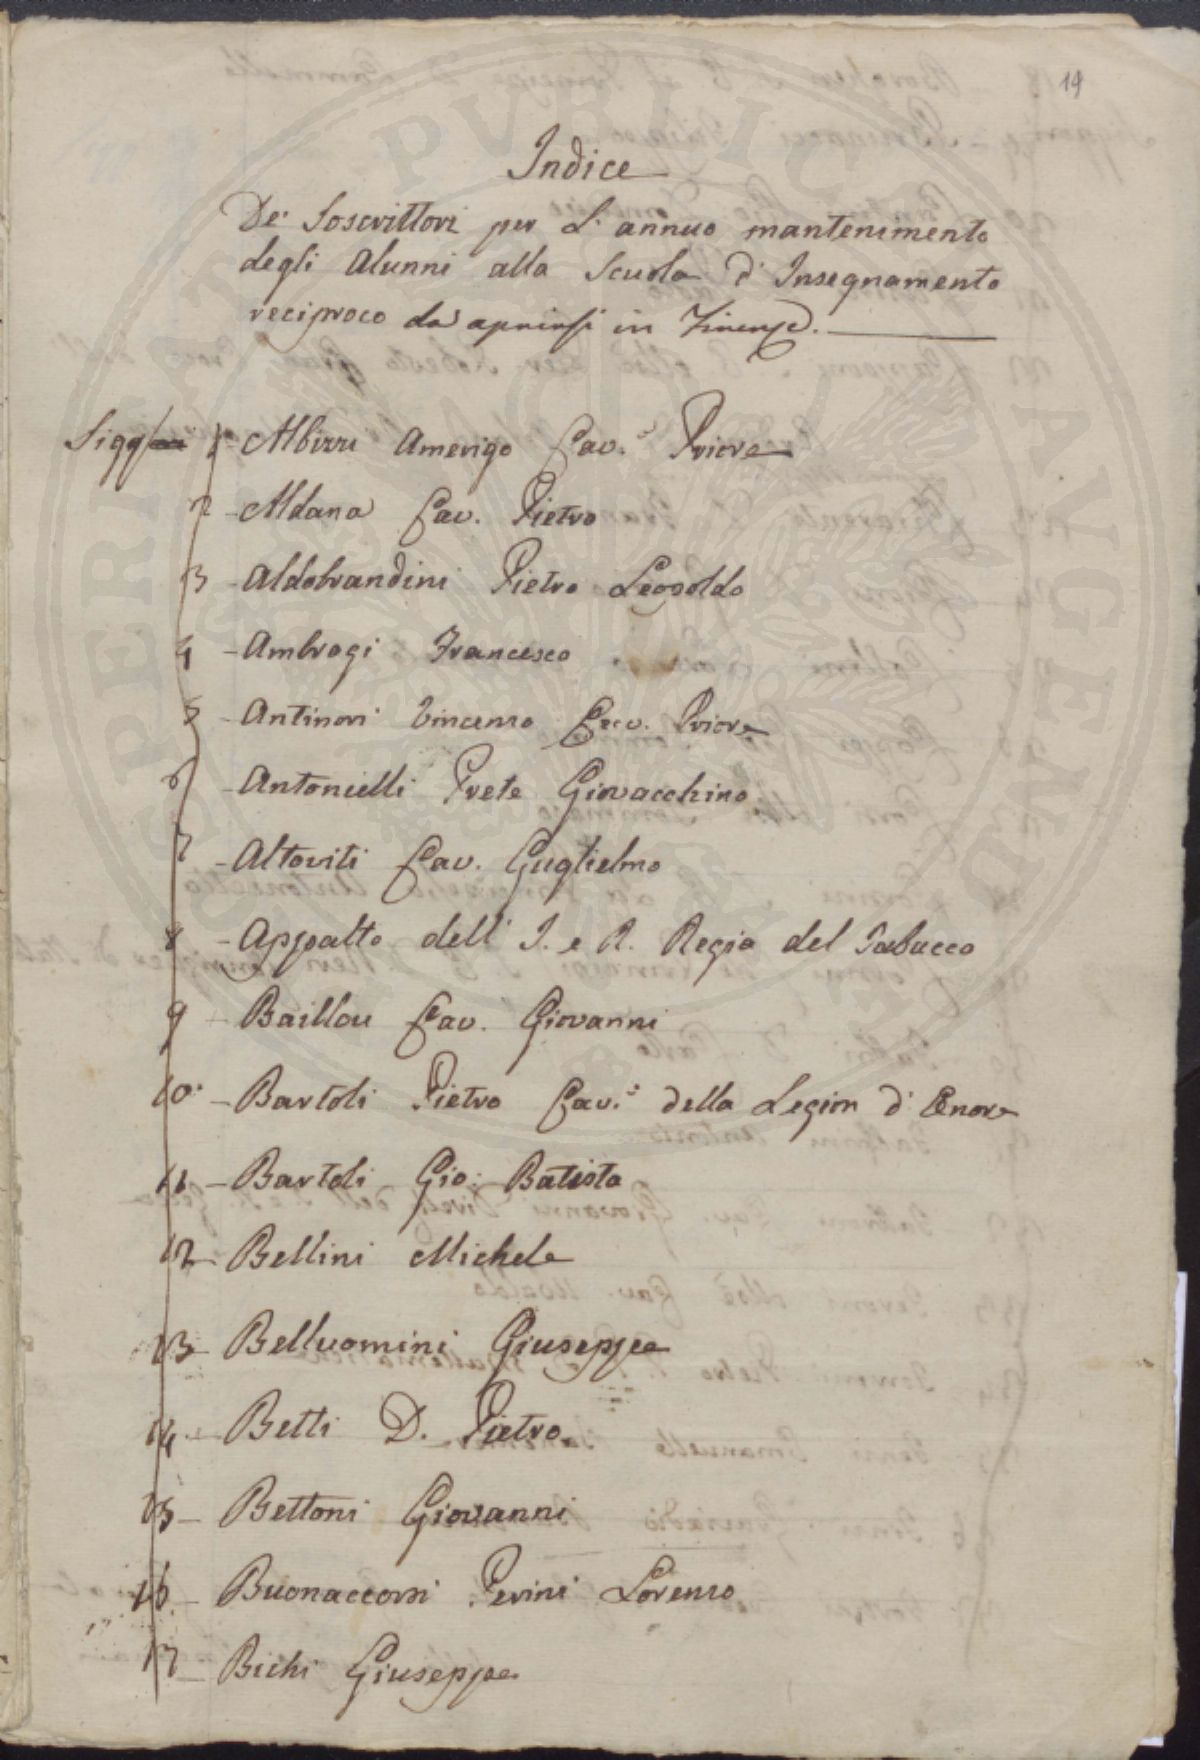 19
Indice
De' Soscrittori per L' annuo mantenimento
degli Alunni alla Scuola d' Insegnamento
reciproco da aprirsi in Firenze.
Sigg 1 - Albizzi Amerigo Cav.e Priore
2 - Aldana Cav. Pietro
3 - Aldobrandini Pietro Leopoldo
4 - Ambrogi Francesco
5 - Antinori Vincenzo Cav. Priore
6 - Antonielli Prete Giovacchino
7 - Altoviti Cav. Guglielmo
8 - Appalto dell' I. e R. Regia del Tabacco
9 - Baillou Cav. Giovanni
10 - Bartoli Pietro Cav.e della Legion d' Onore
11 - Bartoli Gio: Batista
12 - Bellini Michele
13 - Belluomini Giuseppe
14 - Betti D. Pietro
15 - Bettoni Giovanni
16 - Buonaccorsi Perini Lorenzo
17 - Bichi Giuseppe